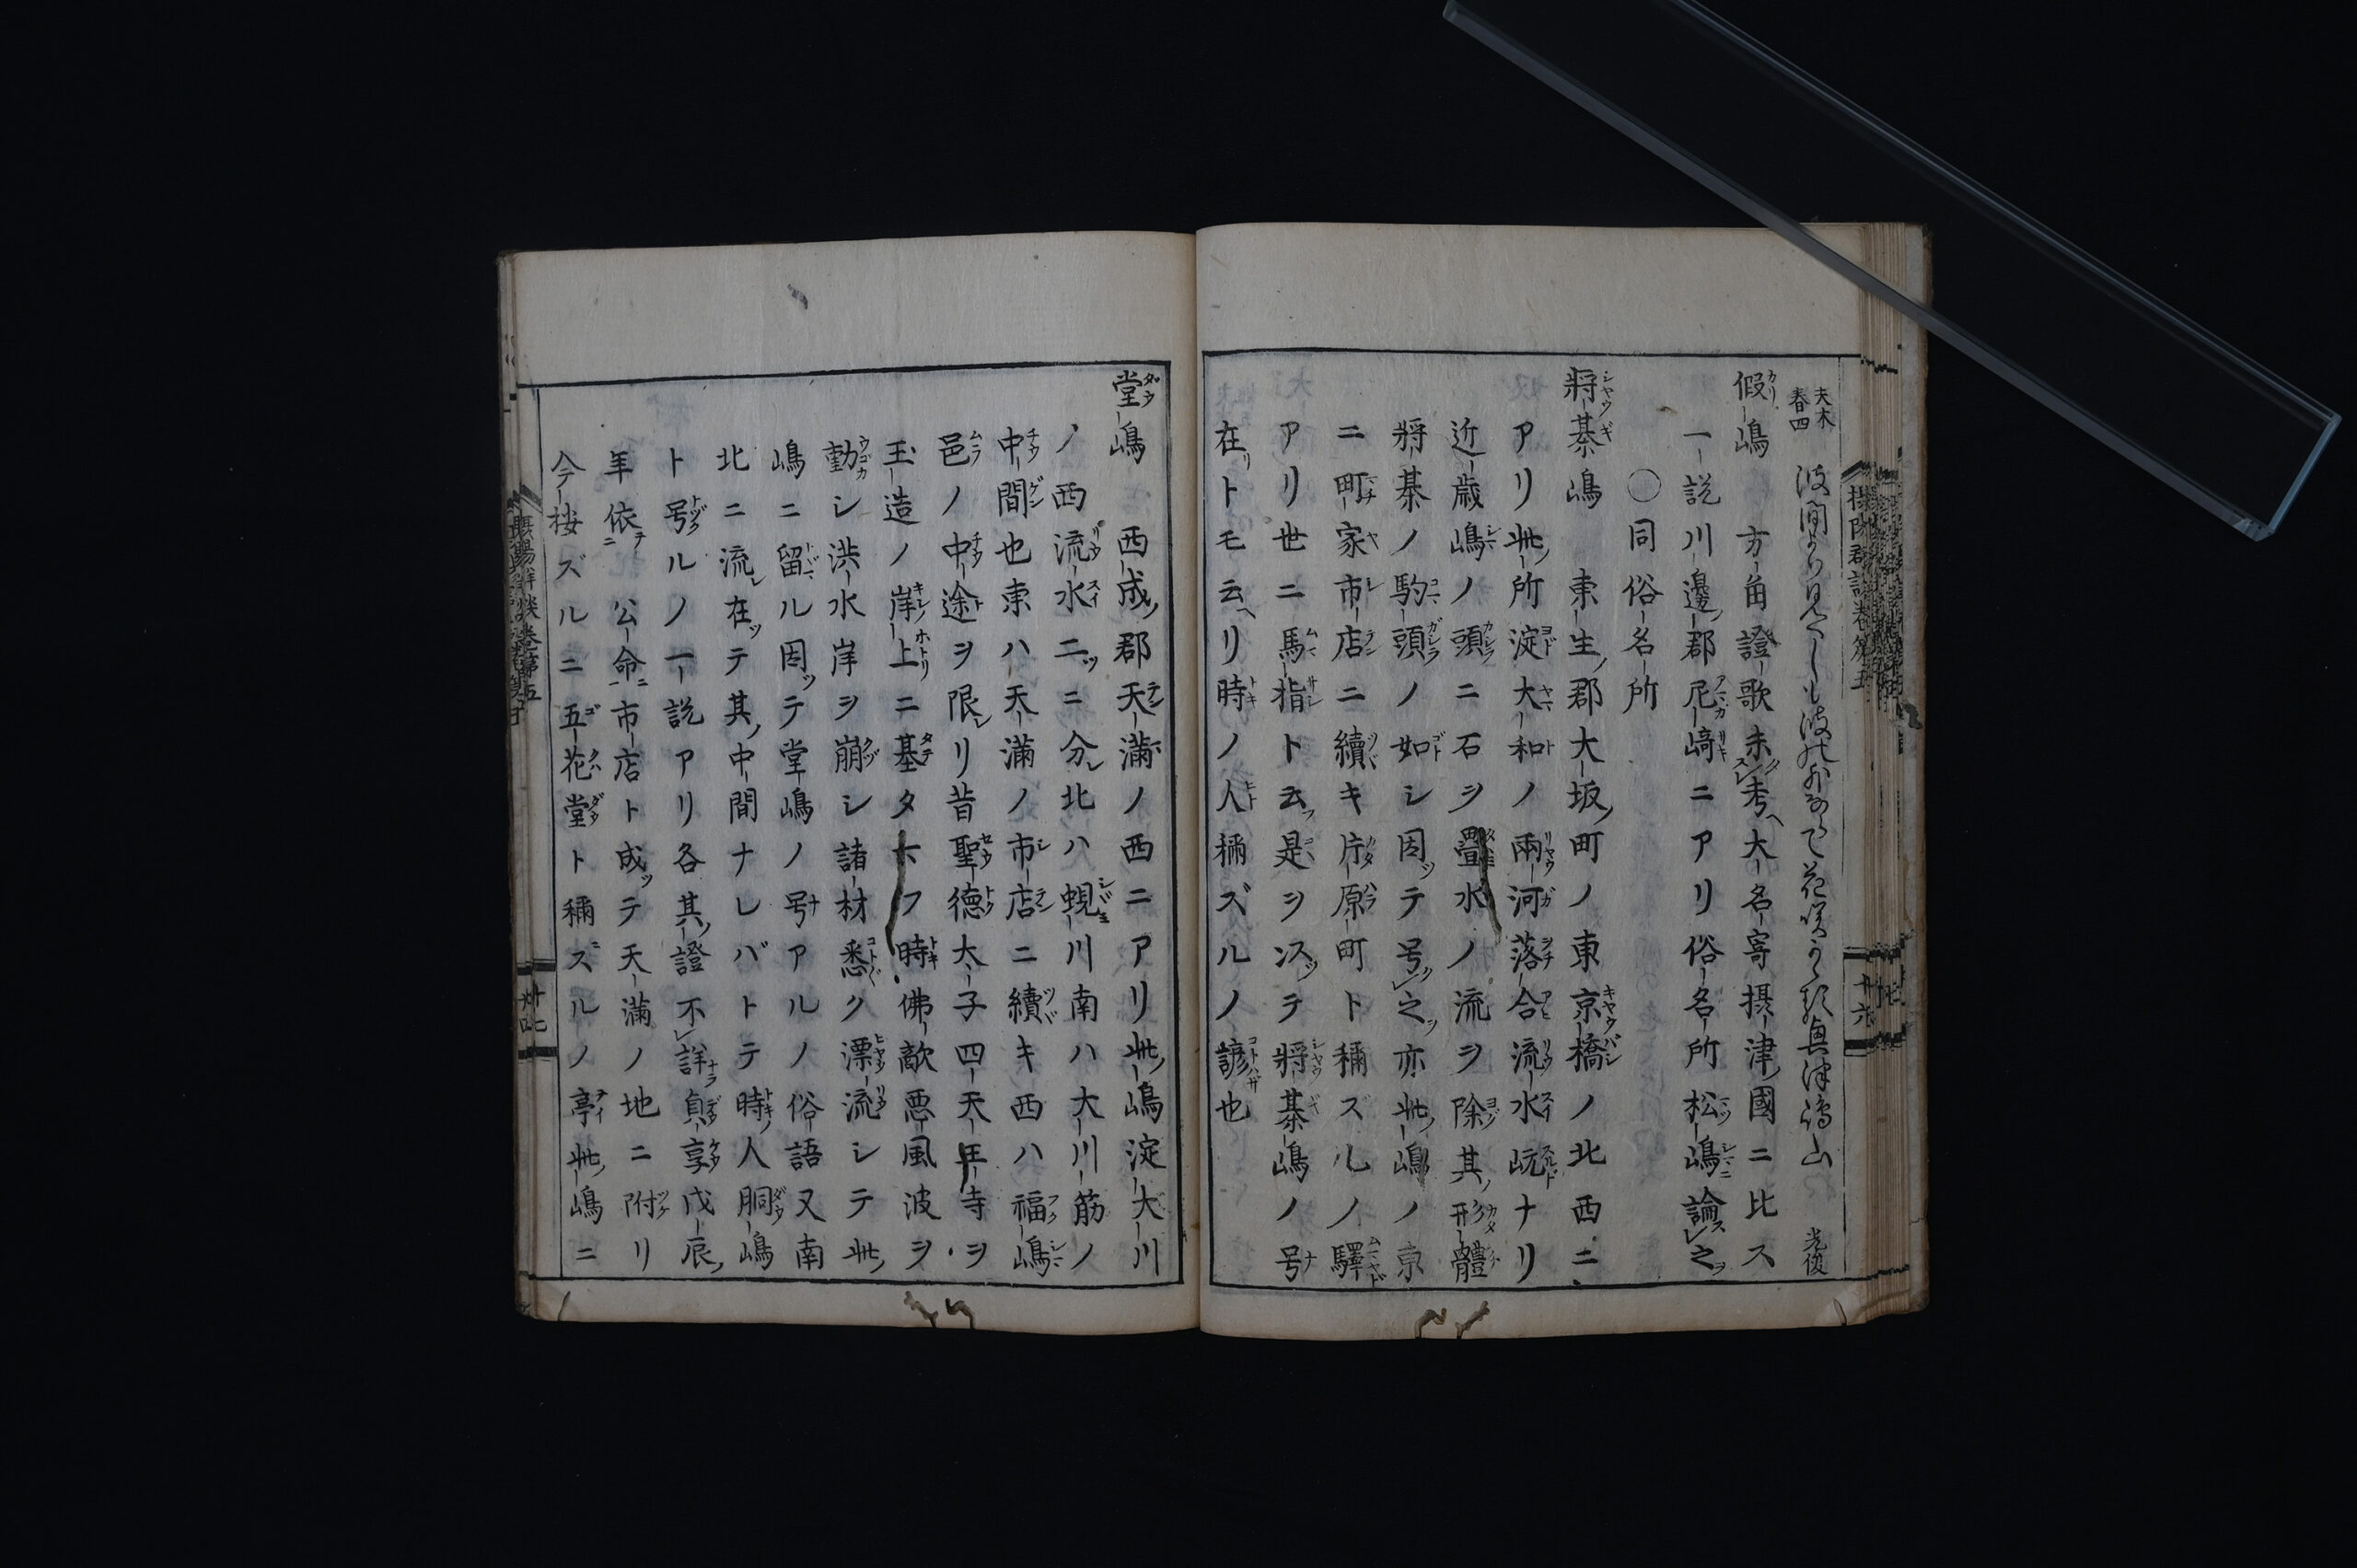 夫木
春四
光俊
假嶋　方角證歌未考大名寄摂津國ニ比ス
一説川邊郡尼﨑ニアリ俗名所松嶋論之
〇同俗名所
將棊嶋　東生郡大坂町ノ東京橋ノ北西ニ
アリ此所淀大和ノ兩河落合流水岏ナリ
近歳嶋ノ頭ニ石ヲ疊水ノ流ヲ除其形體
將棊ノ駒頭ノ如シ因テ号之亦此嶋ノ京
ニ町家市店ニ續キ片原町ト稱ズルノ驛
アリ世ニ馬指ト云是ヲ以テ將棊嶋ノ号
在トモ云リ時ノ人稱ズルノ諺也
堂嶋　西成郡天滿ノ西ニアリ此嶋淀大川
ノ西流水二ニ分レ北ハ蜆川南ハ大川筋ノ
中間也東ハ天滿ノ市店ニ續キ西ハ福嶋
邑ノ中途ヲ限リ昔聖德太子四天王寺ヲ
玉造ノ岸上ニ基タマフ時佛敵惡風波ヲ
動シ洪水岸ヲ崩シ諸材悉ク漂流シテ此
嶋ニ留ル因テ堂嶋ノ号アルノ俗語又南
北ニ流在テ其中間ナレバトテ時人胴嶋
ト号ルノ一説アリ各其證不詳貞享戊辰
年依公命市店ト成テ天滿ノ地ニ附リ
今按ズルニ五花堂ト稱スルノ亭此嶋ニ